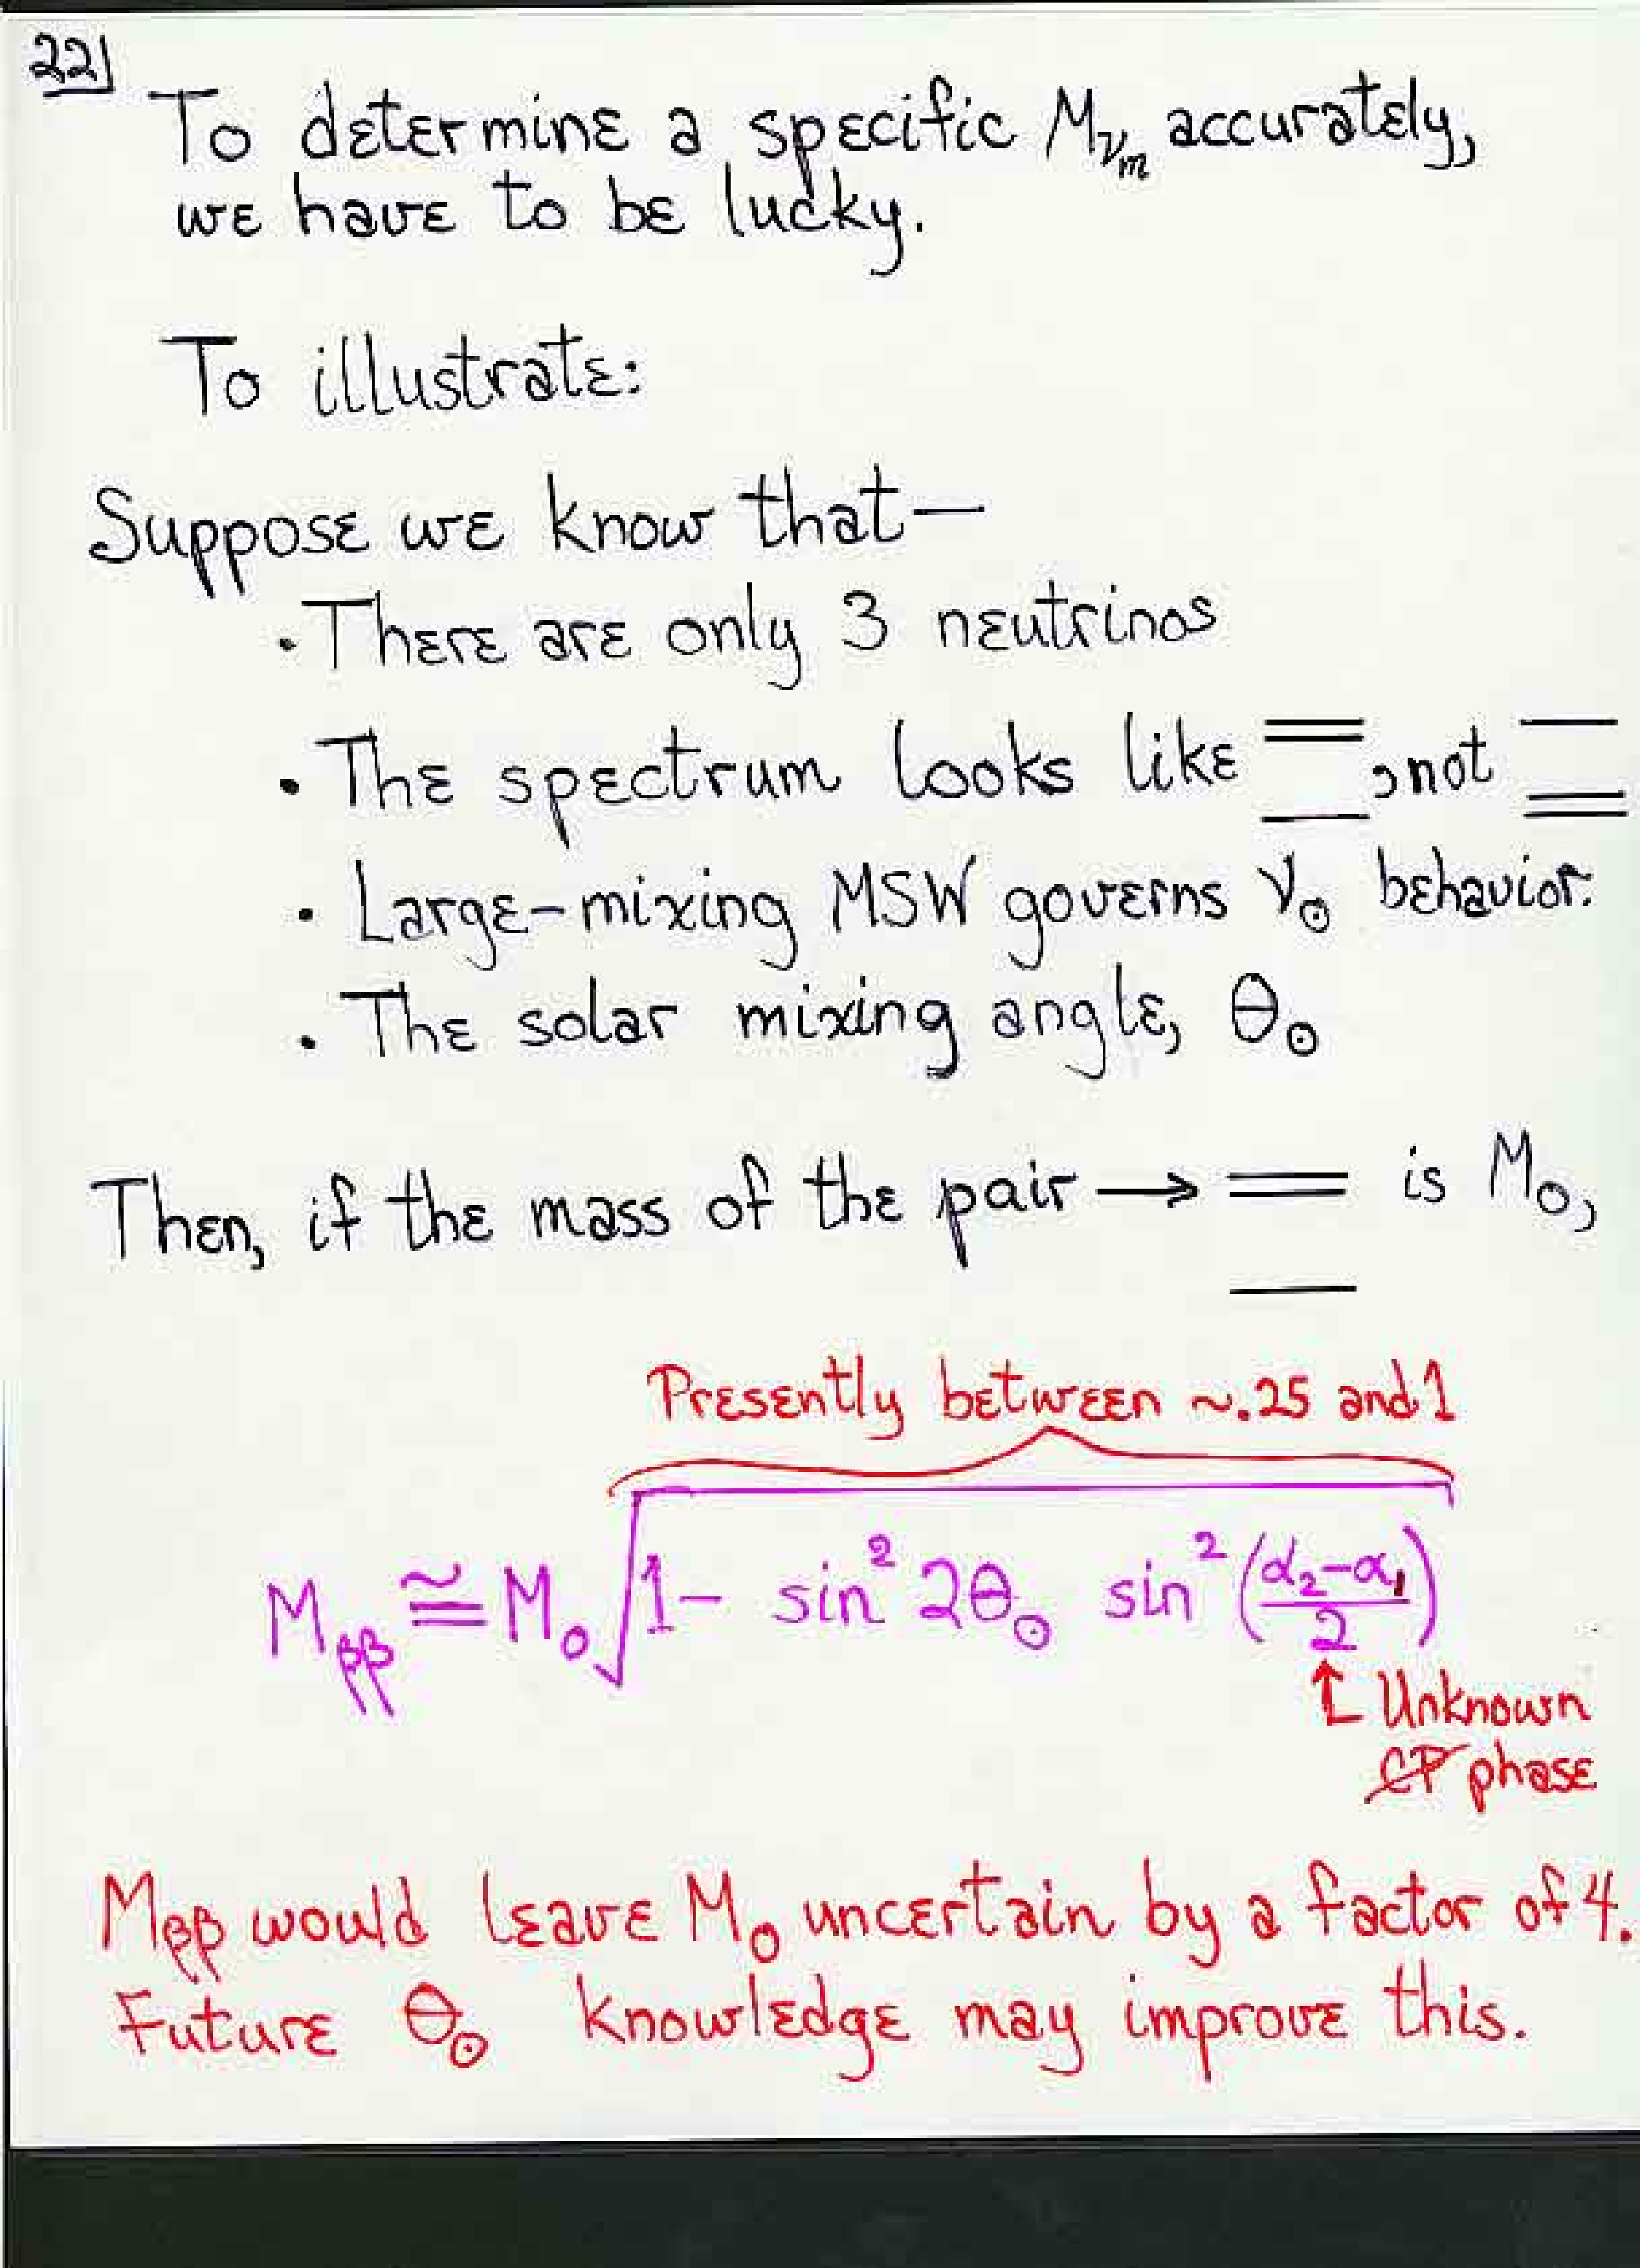 22)
To determine a specific M_ν_m accurately,
we have to be lucky.
To illustrate:
Suppose we know that—
· There are only 3 neutrinos
· The spectrum looks like , not
· Large-mixing MSW governs ν_⊙ behavior.
· The solar mixing angle, θ_⊙
Then, if the mass of the pair → is M_0,
Presently between ~.25 and 1
M_ββ ≅ M_0 √(1 − sin² 2θ_⊙ sin² ((α_2−α_1)/2))
↑ Unknown
C̸P̸ phase
M_ββ would leave M_0 uncertain by a factor of 4.
Future θ_⊙ knowledge may improve this.